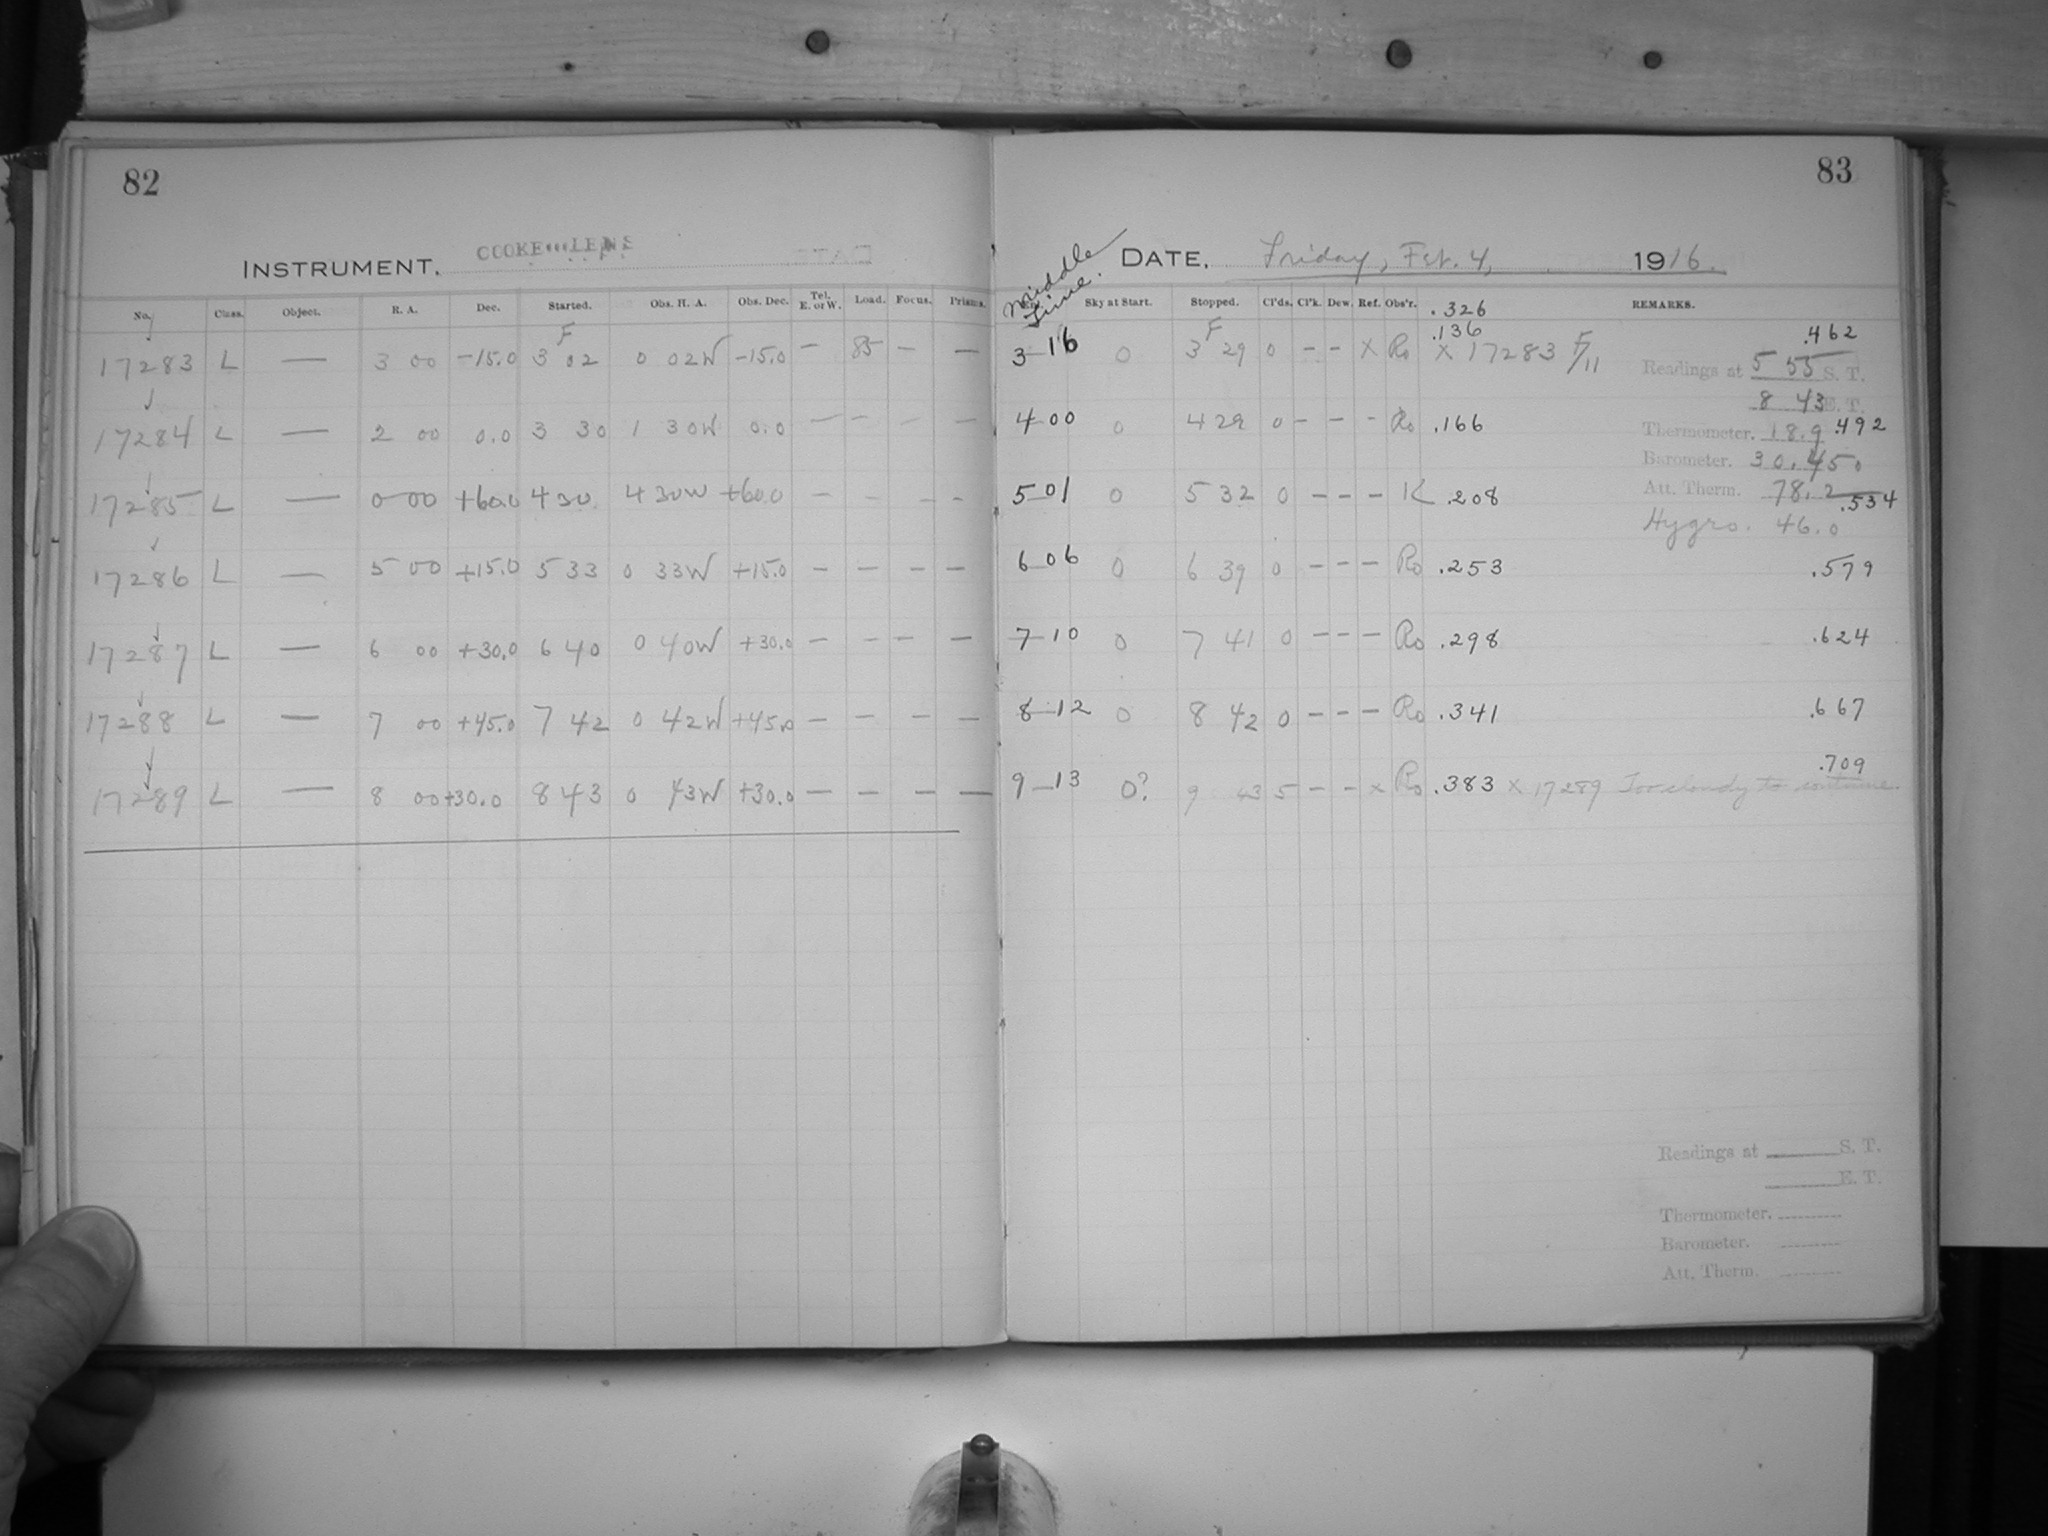 82
INSTRUMENT. COOKE LENS
No. Class. Object. R. A. Dec. Started. Obs. H. A. Obs. Dec. Tel. E. or W. Load. Focus. Prisms.
F
17283 L — 3 00 -15.0 3 02 0 02W -15.0 — 85 — —
17284 L — 2 00 0.0 3 30 1 30W 0.0 — — — —
17285 L — 0 00 +60.0 4 30 4 30W +60.0 — — — —
17286 L — 5 00 +15.0 5 33 0 33W +15.0 — — — —
17287 L — 6 00 +30.0 6 40 0 40W +30.0 — — — —
17288 L — 7 00 +45.0 7 42 0 42W +45.0 — — — —
17289 L — 8 00 +30.0 8 43 0 43W +30.0 — — — —
83
Middle Time.
DATE. Friday, Feb. 4, 1916.
Sky at Start. Stopped. Cl'ds. Cl'k. Dew. Ref. Obs'r. REMARKS.
.326
F .136 .462
3-16 0 3 29 0 - - X Ro X 17283 F/11
Readings at 5 55 S. T.
8 43 E. T.
4-00 0 4 29 0 - - - Ro .166
Thermometer. 18.9 .492
Barometer. 30.450
5-01 0 5 32 0 - - - K .208
Att. Therm. 78.2 .534
Hygro. 46.0
6-06 0 6 39 0 - - - Ro .253 .579
7-10 0 7 41 0 - - - Ro .298 .624
8-12 0 8 42 0 - - - Ro .341 .667
.709
9-13 0? 9 43 5 - - x Ro .383 X 17289 Too cloudy to continue.
Readings at S. T.
E. T.
Thermometer.
Barometer.
Att. Therm.